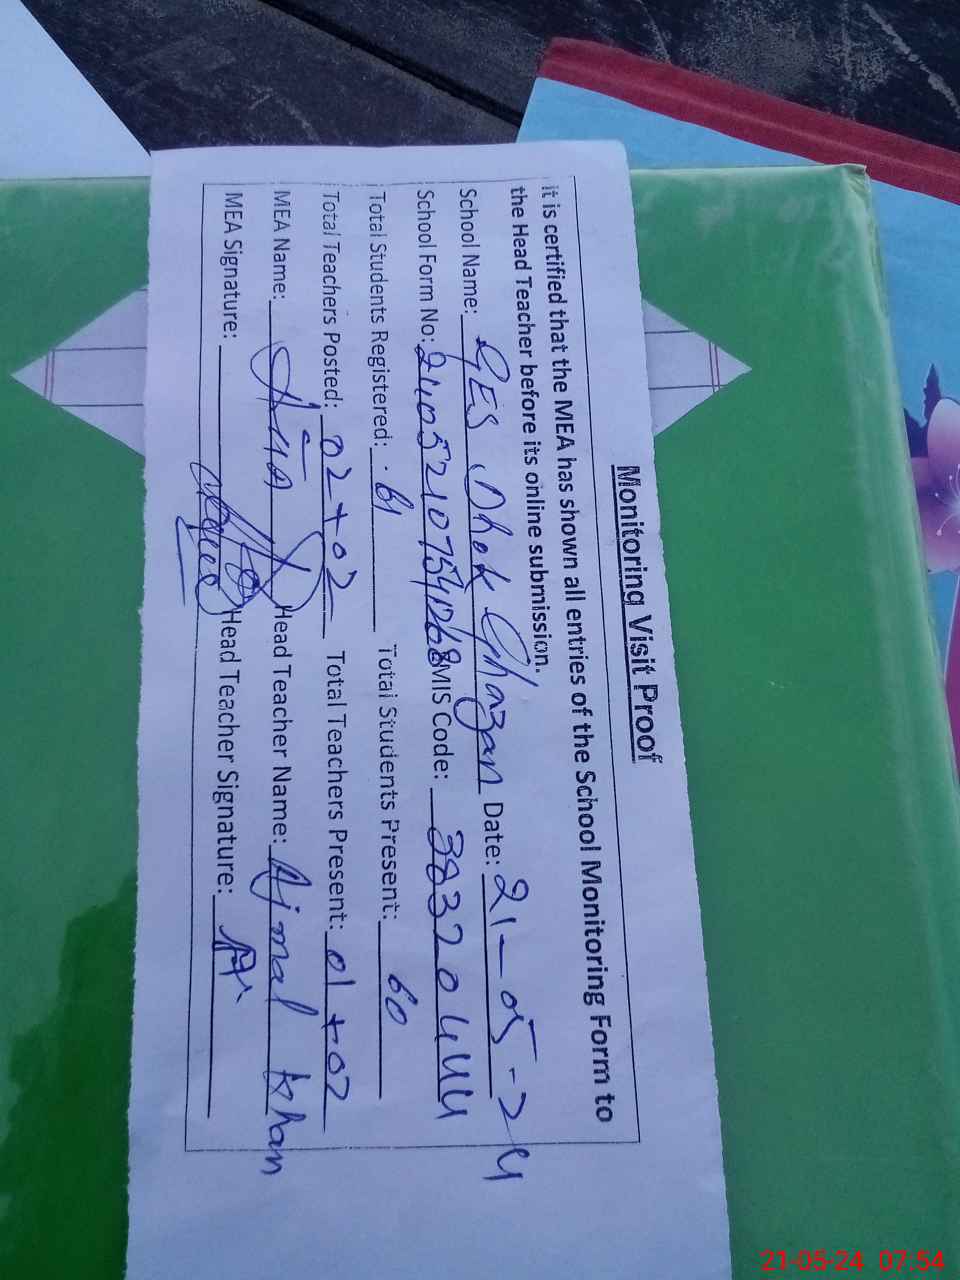 Monitoring Visit Proof
it is certified that the MEA has shown all entries of the School Monitoring Form to
the Head Teacher before its online submission.
School Name: GES Dhok Ghazan Date: 21-05-24
School Form No: MIS Code: 38320444
Total Students Registered: 61 Total Students Present: 60
Total Teachers Posted: 02+02 Total Teachers Present: 01+02
MEA Name: Head Teacher Name: Ajmal Khan
MEA Signature: Head Teacher Signature:
21-05-24 07:54